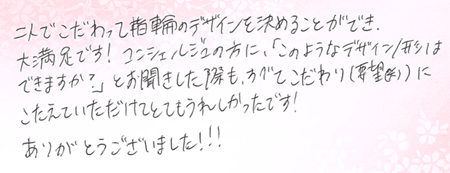 二人でこだわって指輪のデザインを決めることができ、
大満足です！コンシェルジュの方に、「このようなデザイン/形は
できますか？」とお聞きした際も、すべてこだわり(要望(笑))に
こたえていただけてとてもうれしかったです！
ありがとうございました！！！